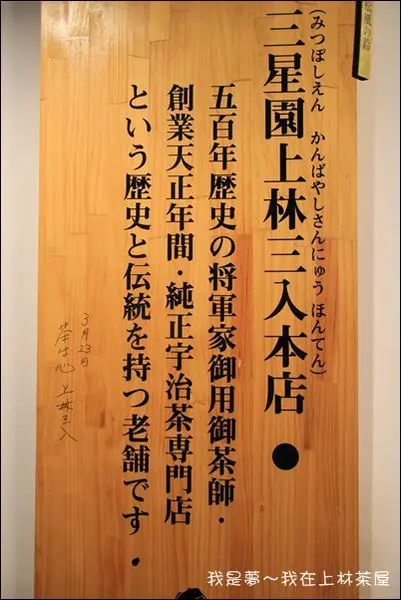 松風の鈴
(みつぼしえん　かんばやしさんにゅう ほんてん)
三星園上林三入本店 ●
五百年歴史の将軍家御用御茶師・
創業天正年間・純正宇治茶専門店
という歴史と伝統を持つ老舗です・
3月23日
上林三入
我是夢～我在上林茶屋